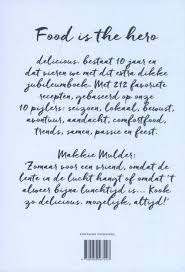 Food is the hero
delicious. bestaat 10 jaar en
dat vieren we met dit extra dikke
jubileumboek. Met 212 favoriete
recepten, gebaseerd op onze
10 pijlers: seizoen, lokaal, bewust,
avontuur, aandacht, comfortfood,
trends, samen, passie en feest.
Makkie Mulder:
'Zomaar voor een vriend, omdat de
lente in de lucht hangt of omdat 't
alweer bijna lunchtijd is... Kook
zo delicious. mogelijk, altijd!'